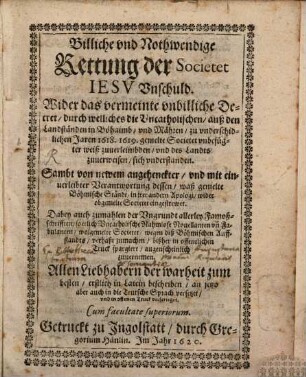 Billiche vnd Nothwendige
Rettung der Societet
IESV Vnschuld.
Wider das vermeinte vnbilliche De-
cret / durch welliches die Vncatholischen / auß den
Landständen in Böhaimb / vnd Mähren / zu vnderschid-
lichen Jaren 1618. 1619. gemelte Societet vnbefüg-
ter weiß zuuerleimbden / vnd des Landts
zuuerweisen / sich vnderstanden.
Sambt von newem angehenckter / vnd mit ein-
uerleibter Verantwortung dessen / waß gemelte
Böhmische Stände in jrer andern Apologi / wider
obgemelte Societet eingestrewet.
Dabey auch zumahlen der Vngrundt allerley Famoß-
schrifften /
wegen diß Böhmischen Auff-
standts / verfaßt
Truck spargiert / augenscheinlich
zuuernemmen.
Allen Liebhabern der warheit zum
besten / erstlich in Latein beschriben / an jetzo
aber auch in die Teutsche Sprach versetzt /
vnd in offenen Truck verfertiget.
Cum facultate superiorum.
Getruckt zu Ingolstatt / durch Gre-
gorium Hänlin. Im Jahr 1620.